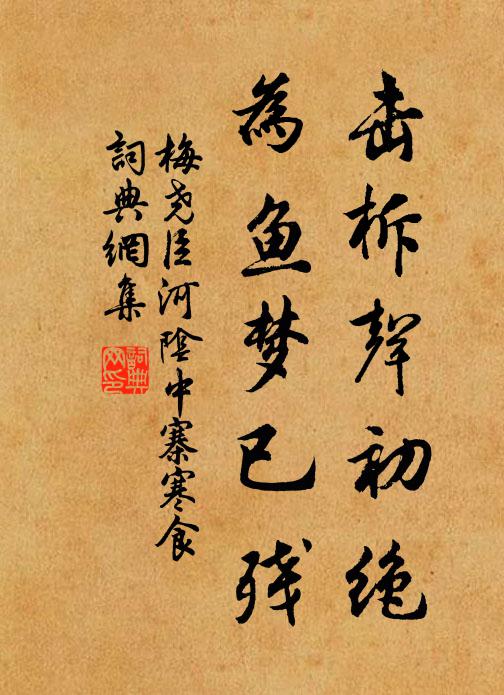 击柝聲初绝
為鱼梦已残
梅尧臣河陰中寨寒食
詞典網集
詞典网印